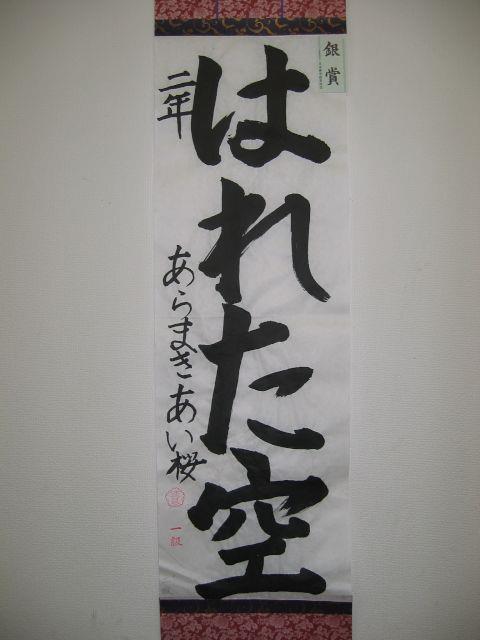 銀賞
はれた空
二年
あらまきあい桜
一級